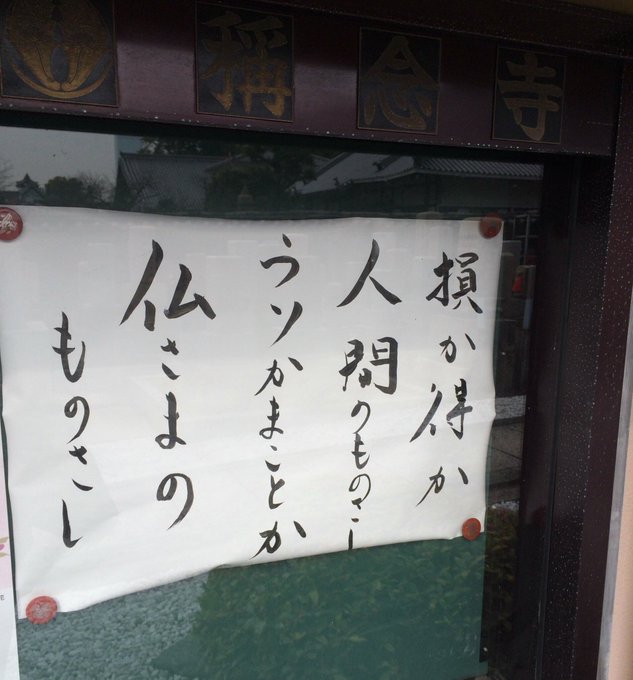 稱念寺
損か得か
人間のものさし
うソかまことか
仏さまの
ものさし